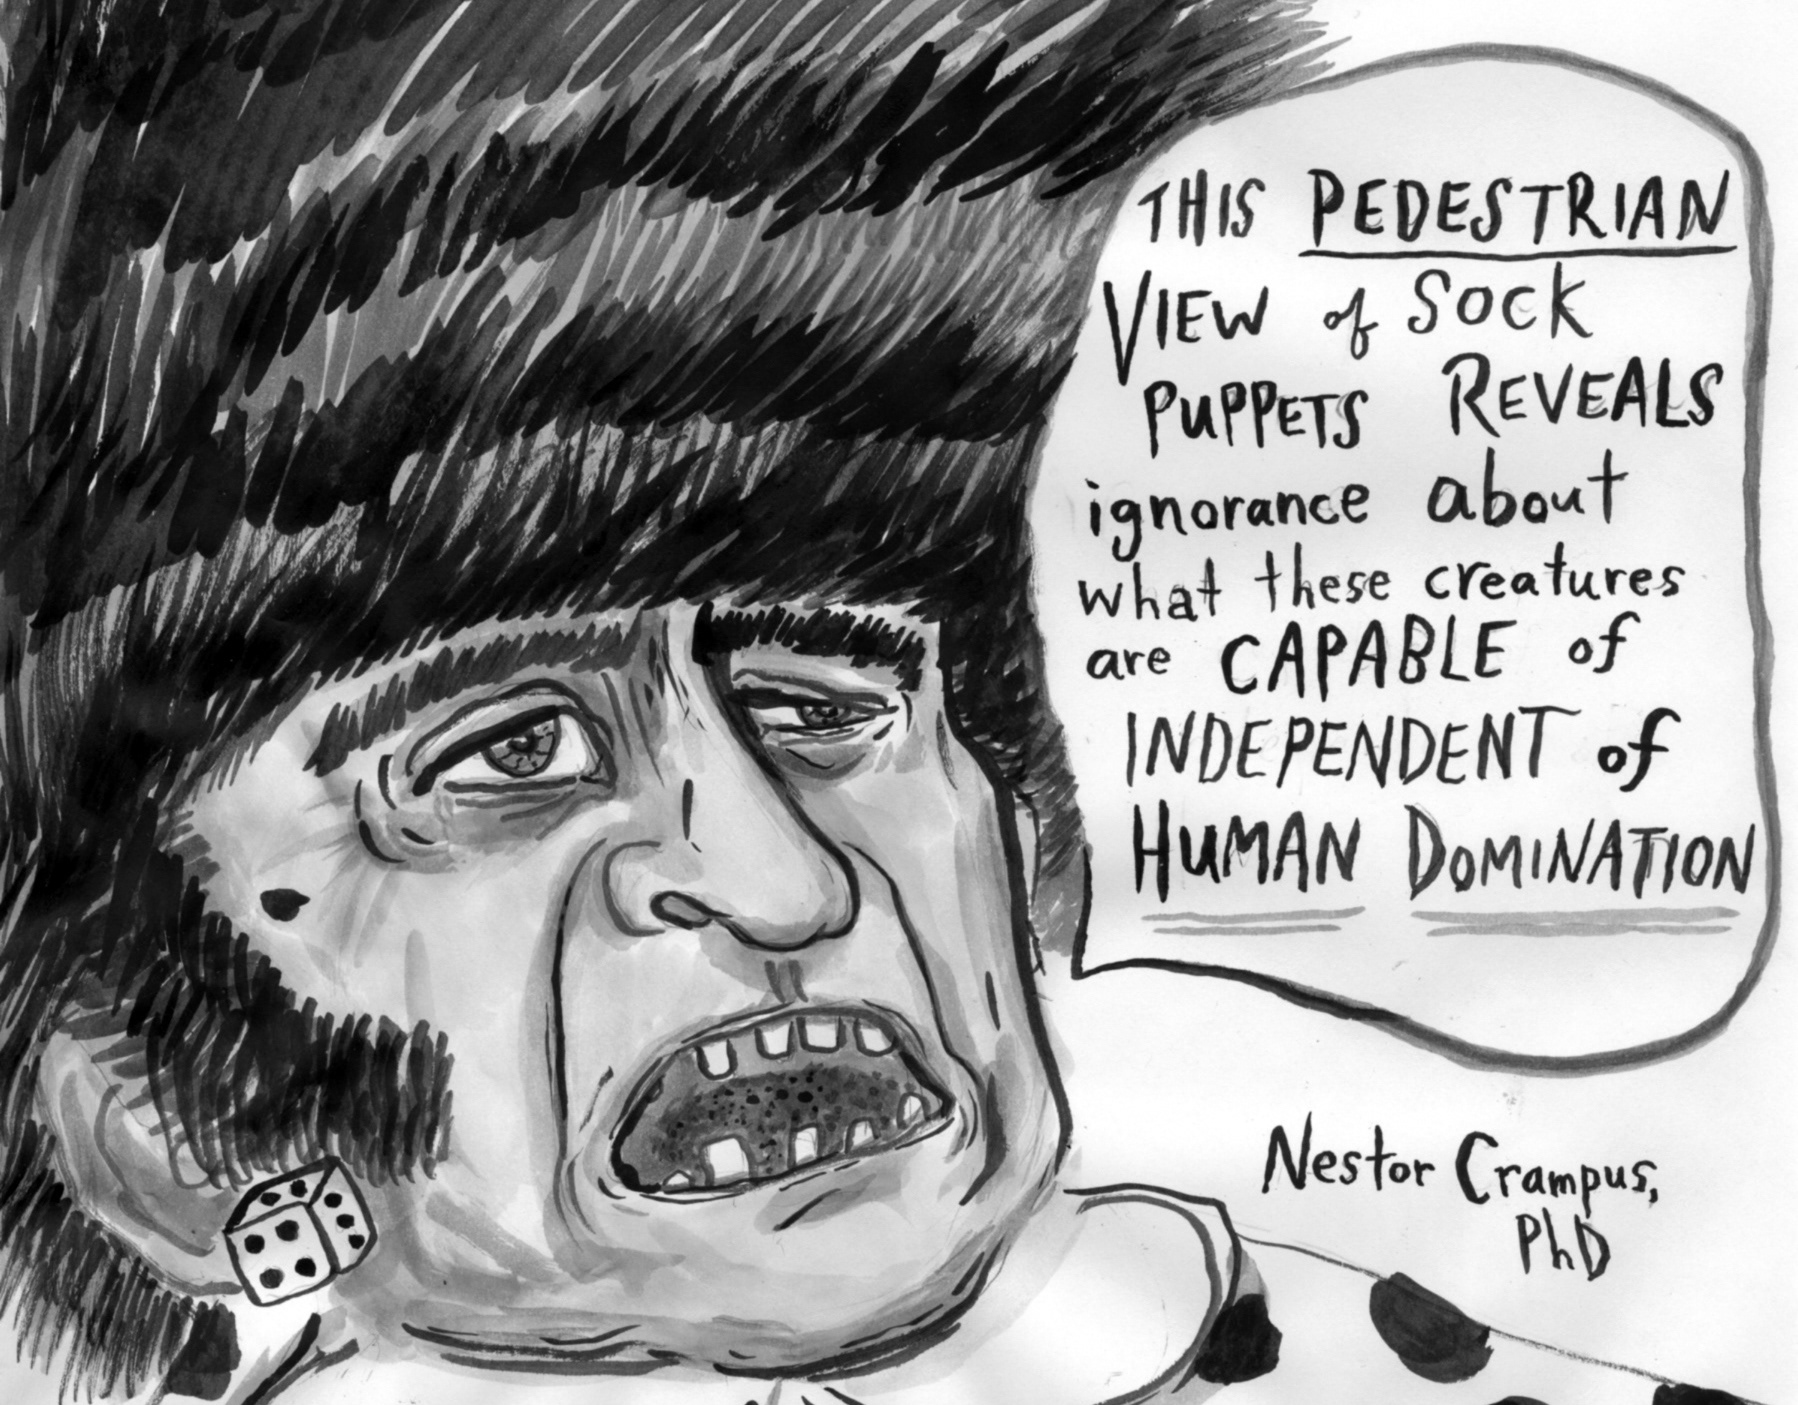 THIS PEDESTRIAN
VIEW of SOCK
PUPPETS REVEALS
ignorance about
what these creatures
are CAPABLE of
INDEPENDENT of
HUMAN DOMINATION
Nestor Crampus,
PhD